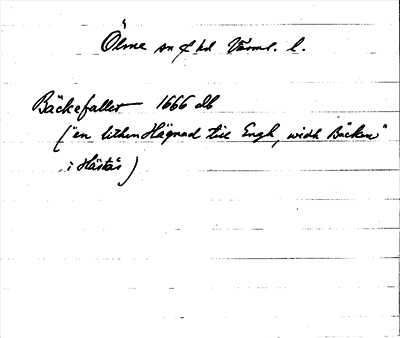 Ölme sn o hd Värml. l.
Bäckefallet 1666 db
("en lithen Hägnad till Engh, widh Bäcken"
i Hästås)